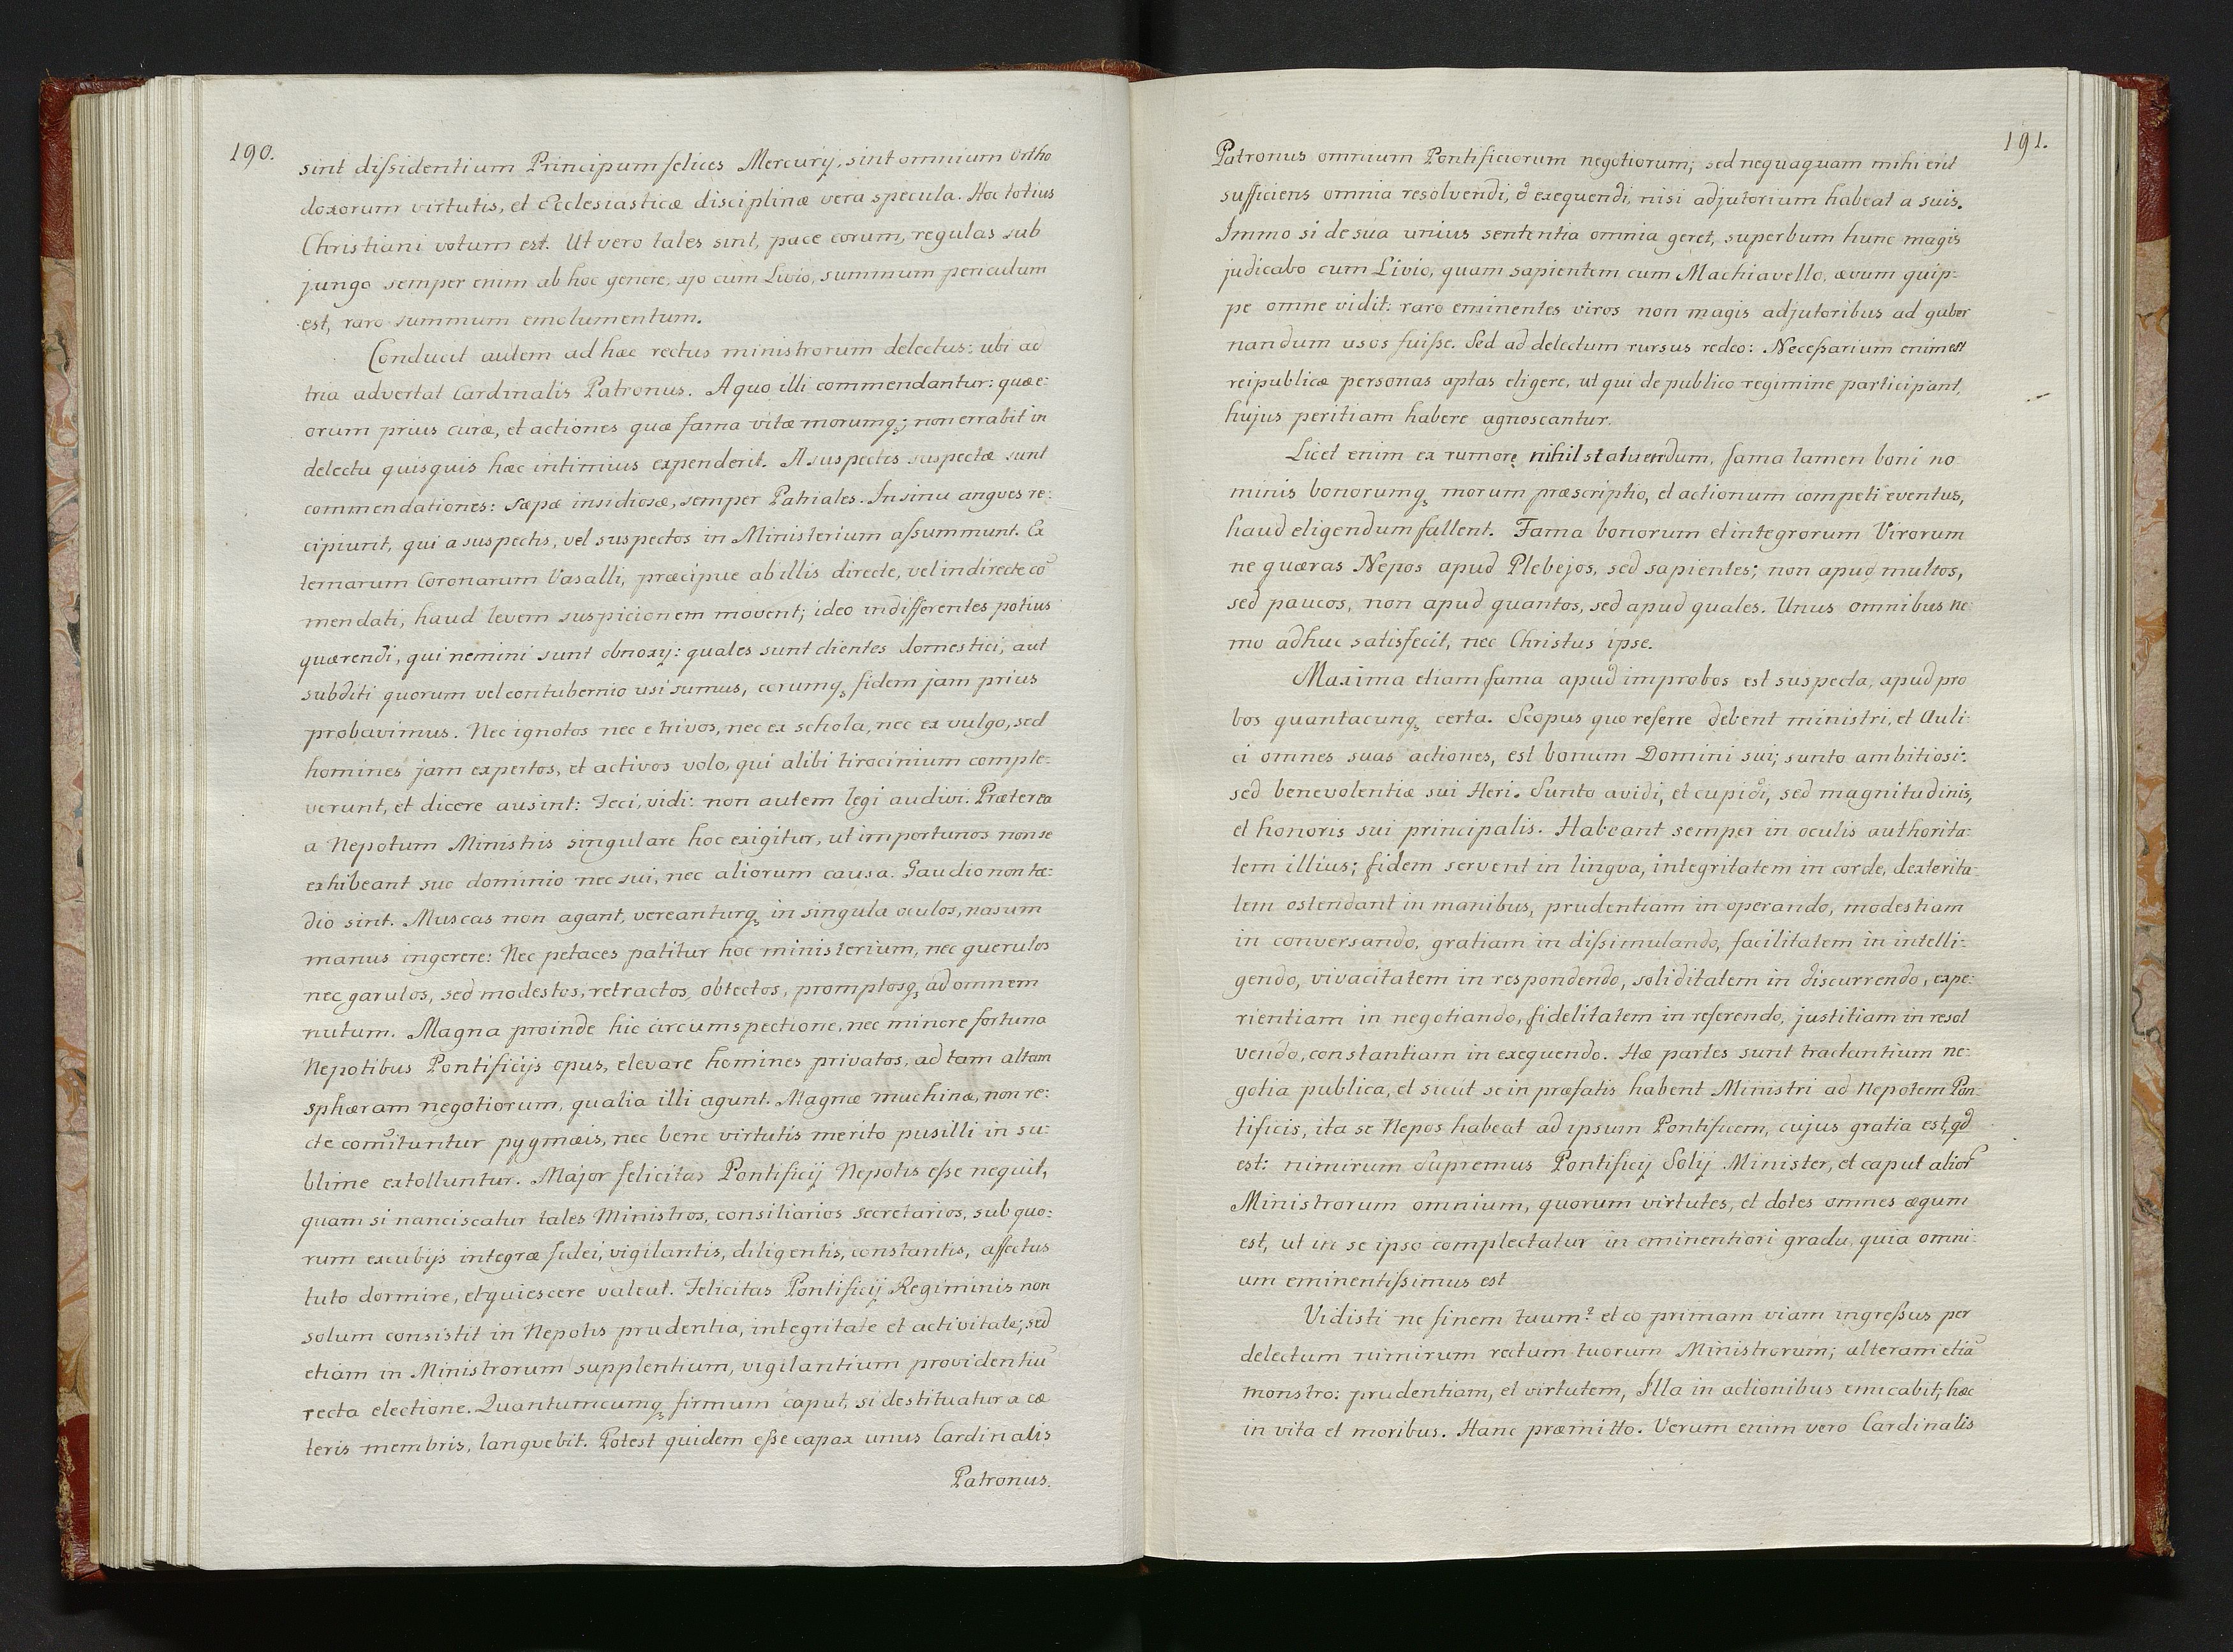 190.
sint dissidentium Principum felices Mercurij, sint omnium Ortho
doxorum virtutis, et Ecclesiasticæ disciplinæ vera specula. Hoc totius
Christiani votum est. Ut vero tales sint, pace eorum, regulas sub
jungo semper enim ab hoc genere, ajo cum Livio, summum periculum
est, raro summum emolumentum.
Conducit autem ad hæc rectus ministrorum delectus: ubi ad
tria advertat Cardinalis Patronus. A quo illi commendantur: quæ e:
orum prius curæ, et actiones quæ fama vitæ morumq; non errabit in
delectu quisquis hæc intimius expenderit. A suspectis suspectæ sunt
commendationes: sæpæ insidiosæ, semper Patriales. In sinu angves re:
cipiunt, qui a suspectis, vel suspectos in Ministerium assummunt. Ex
ternarum Coronarum Vasalli, præcipue ab illis directe, vel indirecte co
mendati, haud levem suspicionem movent; ideo indifferentes potius
quærendi, qui nemini sunt obnoxij: quales sunt clientes domestici, aut
subditi quorum vel contubernio usi sumus, eorumq; fidem jam prius
probavimus. Nec ignotos nec e trivos, nec ex schola, nec ex vulgo, sed
homines jam expertos, et activos volo, qui alibi tirocinium comple-
verunt, et dicere ausint: Feci, vidi: non autem legi audivi. Præterea
a Nepotum Ministris singulare hoc exigitur, ut importunos non se
exhibeant suo dominio nec sui, nec aliorum causa. Gaudio non tæ:
dio sint. Muscas non agant, vereanturq; in singula oculos, nasum
manus ingerere: Nec petaces patitur hoc ministerium, nec querulos
nec garulos, sed modestos, retractos, obtectos, promptosq; ad omnem
nutum. Magna proinde hic circumspectione, nec minore fortuna
Nepotibus Pontificijs opus, elevare homines privatos, ad tam altam
sphæram negotiorum, qualia illi agunt. Magnæ muchinæ, non re:
cte comituntur pygmæis, nec bene virtutis merito pusilli in su:
blime extolluntur. Major felicitas Pontificij Nepotis esse nequit,
quam si nanciscatur tales Ministros, consiliarios secretarios, sub quo:
rum excubijs integræ fidei, vigilantis, diligentis, constantis, affectus
tuto dormire, et quiescere valeat. Felicitas Pontificij Regiminis non
solum consistit in Nepotis prudentia, integritate et activitate; sed
etiam in Ministrorum supplentium, vigilantium providentiu
recta electione. Quantumcumq; firmum caput, si destituatur a cæ
teris membris, langvebit. Potest quidem esse capax unus Cardinalis
Patronus.
191.
Patronus omnium Pontificiorum negotiorum; sed nequaquam mihi erit
sufficiens omnia resolvendi, & exequendi, nisi adjutorium habeat a suis.
Immo si de sua unius sententia omnia geret, superbum hunc magis
judicabo cum Livio, quam sapientem cum Machiavello, ævum quip-
pe omne vidit: raro eminentes viros non magis adjutoribus ad guber
nandum usos fuisse. Sed ad delectum rursus redeo: Necessarium enim est
reipublicæ personas aptas eligere, ut qui de publico regimine participant,
hujus peritiam habere agnoscantur.
Licet enim ex rumore nihil statuendum, fama tamen boni no
minis bonorumq; morum præscriptio, et actionum competi eventus,
haud eligendum fallent. Fama bonorum et integrorum Virorum
ne quæras Nepos apud Plebejos, sed sapientes; non apud multos,
sed paucos, non apud quantos, sed apud quales. Unus omnibus ne
mo adhuc satisfecit, nec Christus ipse.
Maxima etiam fama apud improbos est suspecta, apud pro
bos quantacunq; certa. Scopus quo referre debent ministri, et Auli:
ci omnes suas actiones, est bonum Domini sui; sunto ambitiosi:
sed benevolentiæ sui Heri. Sunto avidi, et cupidi, sed magnitudinis,
et honoris sui principalis. Habeant semper in oculis authorita:
tem illius; fidem servent in lingva, integritatem in corde, dexterita-
tem ostendant in manibus, prudentiam in operando, modestiam
in conversando, gratiam in dissimulando, facilitatem in intelli-
gendo, vivacitatem in respondendo, soliditatem in discurrendo, expe:
rientiam in negotiando, fidelitatem in referendo, justitiam in resol
vendo, constantiam in exequendo. Hæ partes sunt tractantium ne:
gotia publica, et sicut se in præfatis habent Ministri ad Nepotem Pon-
tificis, ita se Nepos habeat ad ipsum Pontificem, cujus gratia est, qd
est: nimirum Supremus Pontificij Solij Minister, et caput alior
Ministrorum omnium, quorum virtutes, et dotes omnes æqum
est, ut in se ipso complectatur in eminentiori gradu, quia omni-
um eminentissimus est
Vidisti ne finem tuum? et eo primam viam ingressus per
delectum nimirum rectum tuorum Ministrorum; alteram etia
monstro: prudentiam, et virtutem, Illa in actionibus emicabit; hæc
in vita et moribus. Hanc præmitto. Verum enim vero Cardinalis